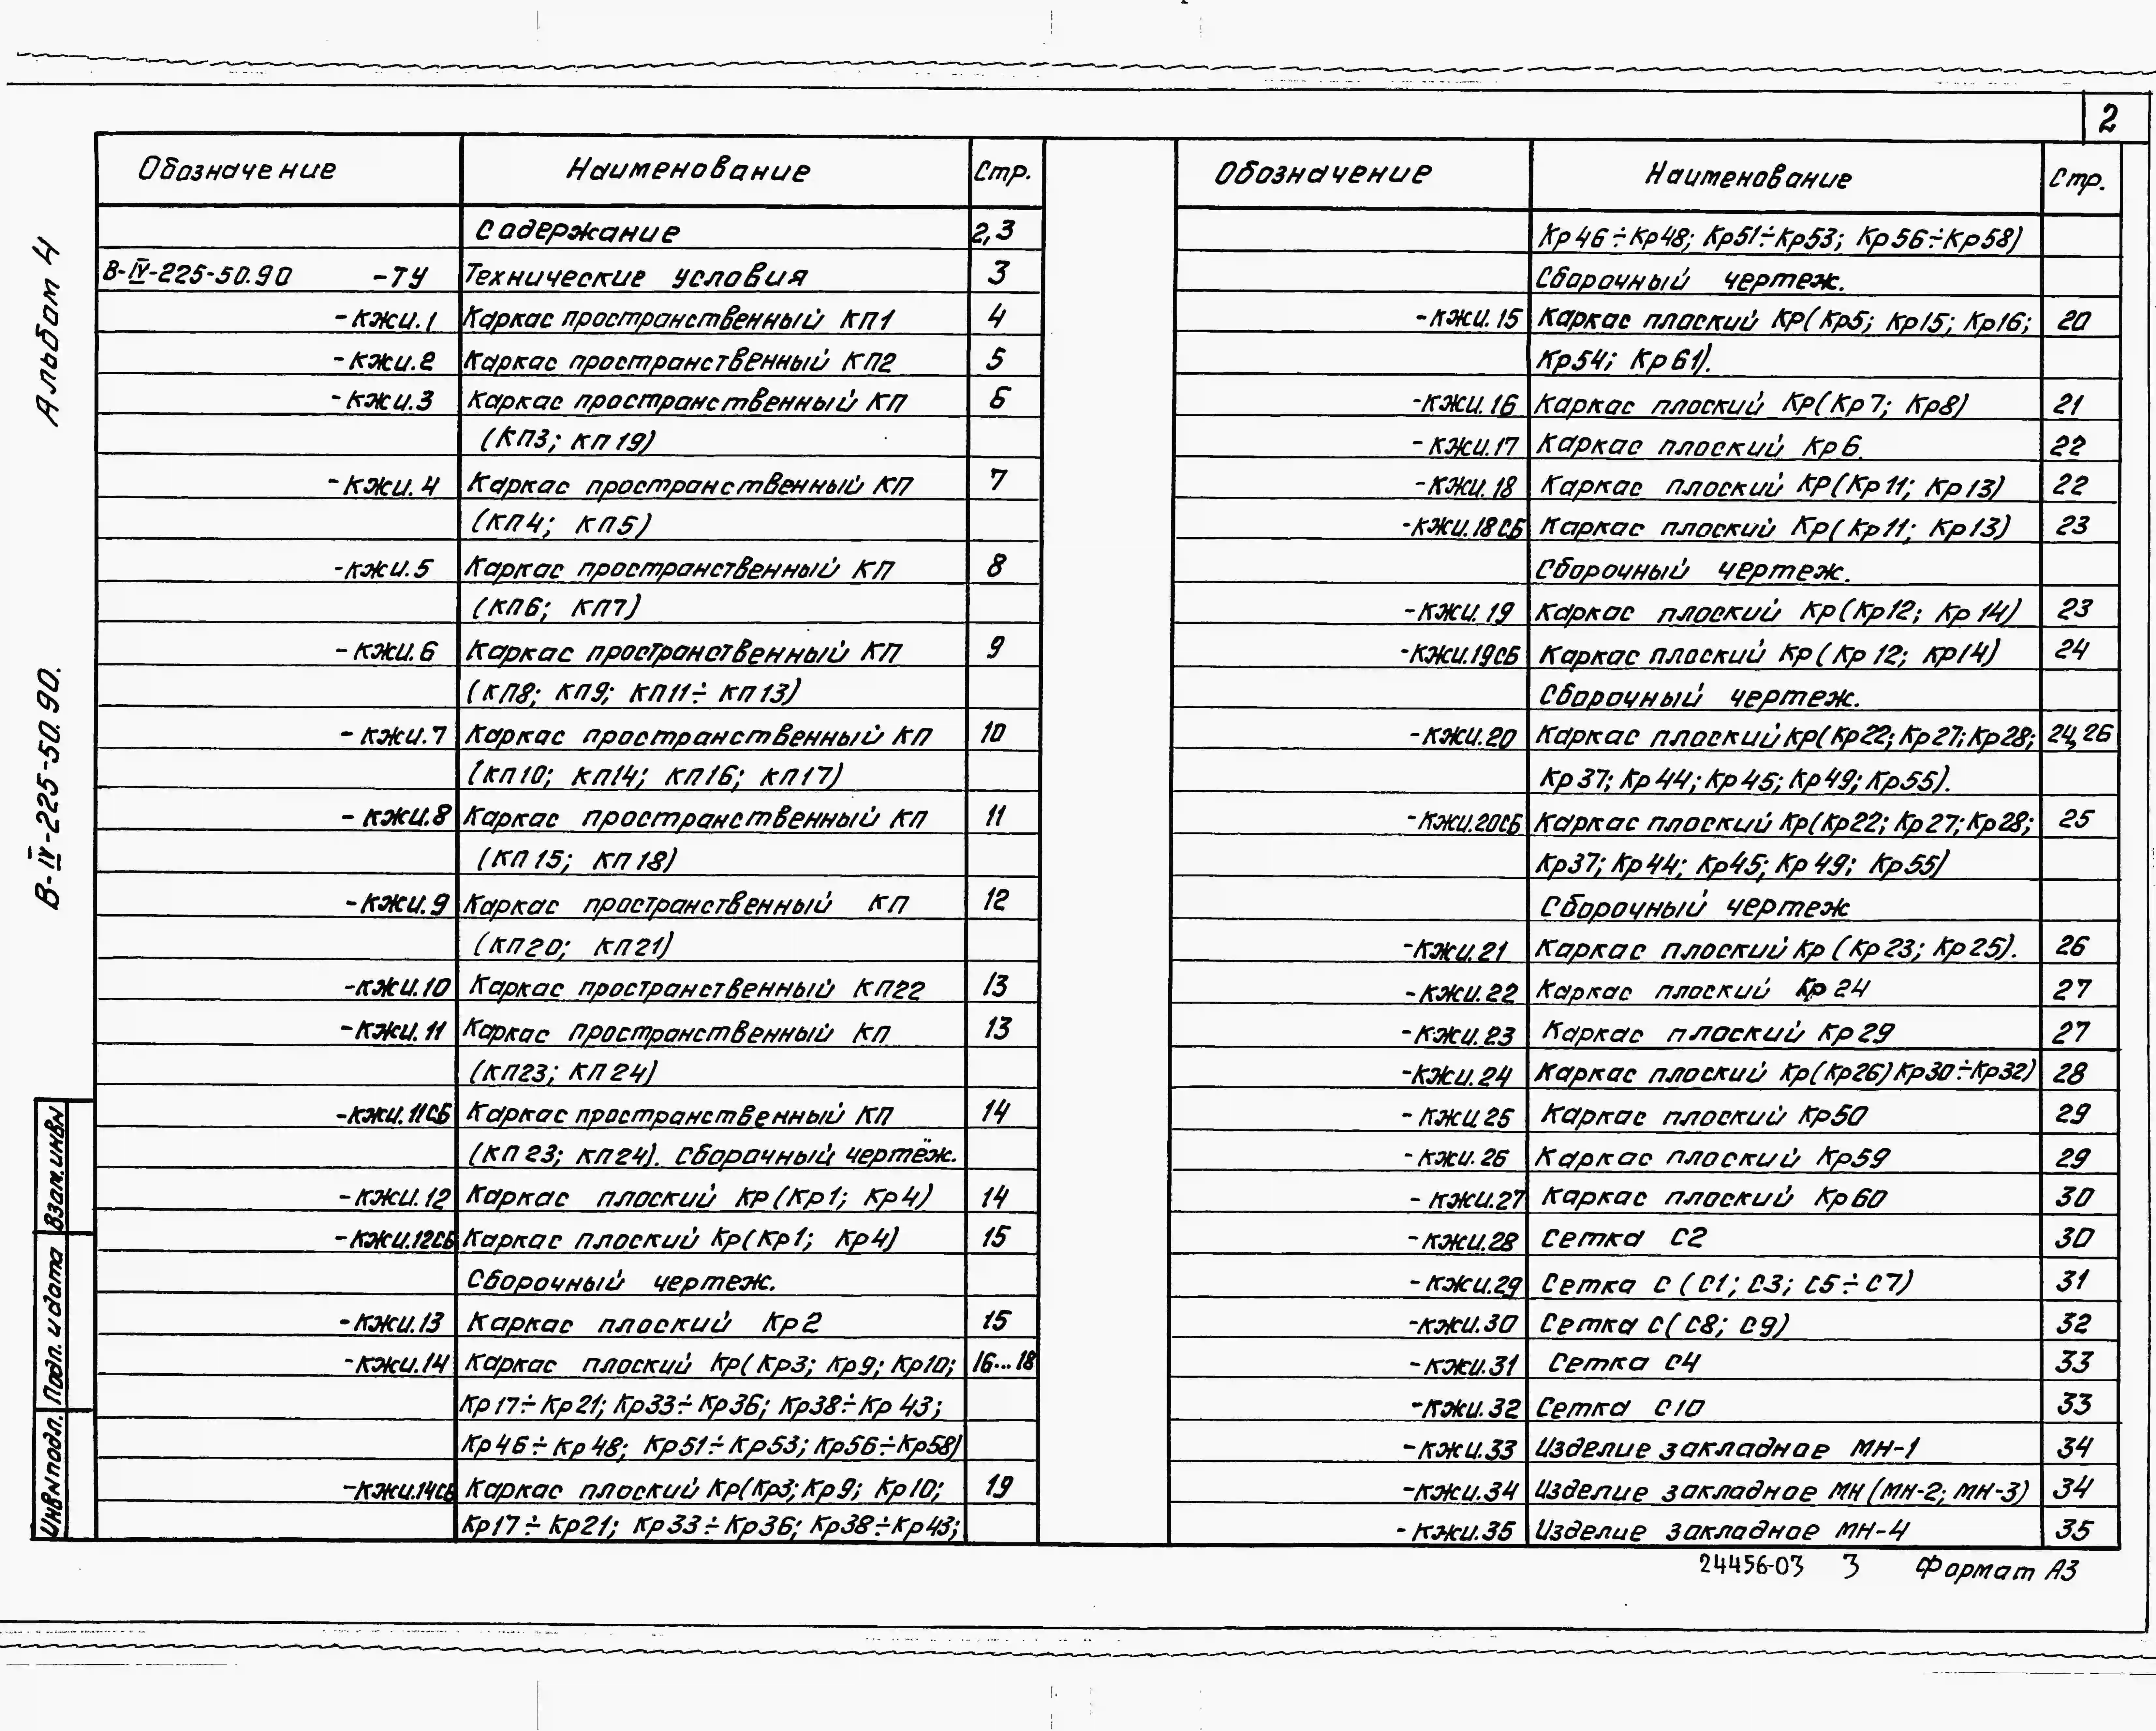 2
Альбом 4
В-IV-225-50.90.
Взам.инв№
Подп. и дата
Инв№подл.
Обозначение Наименование Стр.
Содержание 2,3
В-IV-225-50.90 -ТУ Технические условия 3
-кжи.1 Каркас пространственный КП1 4
-кжи.2 Каркас пространственный КП2 5
-кжи.3 Каркас пространственный КП 6
(КП3; КП19)
-кжи.4 Каркас пространственный КП 7
(КП4; КП5)
-кжи.5 Каркас пространственный КП 8
(КП6; КП7)
-кжи.6 Каркас пространственный КП 9
(КП8; КП9; КП11÷КП13)
-кжи.7 Каркас пространственный КП 10
(КП10; КП14; КП16; КП17)
-кжи.8 Каркас пространственный КП 11
(КП15; КП18)
-кжи.9 Каркас пространственный КП 12
(КП20; КП21)
-кжи.10 Каркас пространственный КП22 13
-кжи.11 Каркас пространственный КП 13
(КП23; КП24)
-кжи.11СБ Каркас пространственный КП 14
(КП23; КП24). Сборочный чертёж.
-кжи.12 Каркас плоский Кр(Кр1; Кр4) 14
-кжи.12СБ Каркас плоский Кр(Кр1; Кр4) 15
Сборочный чертеж.
-кжи.13 Каркас плоский Кр2 15
-кжи.14 Каркас плоский Кр(Кр3; Кр9; Кр10; 16...18
Кр17÷Кр21; Кр33÷Кр36; Кр38÷Кр43;
Кр46÷Кр48; Кр51÷Кр53; Кр56÷Кр58)
-кжи.14СБ Каркас плоский Кр(Кр3; Кр9; Кр10; 19
Кр17÷Кр21; Кр33÷Кр36; Кр38÷Кр43;
Обозначение Наименование Стр.
Кр46÷Кр48; Кр51÷Кр53; Кр56÷Кр58)
Сборочный чертеж.
-кжи.15 Каркас плоский Кр(Кр5; Кр15; Кр16; 20
Кр54; Кр61).
-кжи.16 Каркас плоский Кр(Кр7; Кр8) 21
-кжи.17 Каркас плоский Кр6. 22
-кжи.18 Каркас плоский Кр(Кр11; Кр13) 22
-кжи.18СБ Каркас плоский Кр(Кр11; Кр13) 23
Сборочный чертеж.
-кжи.19 Каркас плоский Кр(Кр12; Кр14) 23
-кжи.19СБ Каркас плоский Кр(Кр12; Кр14) 24
Сборочный чертеж.
-кжи.20 Каркас плоский Кр(Кр22; Кр27; Кр28; 24,26
Кр37; Кр44; Кр45; Кр49; Кр55).
-кжи.20СБ Каркас плоский Кр(Кр22; Кр27; Кр28; 25
Кр37; Кр44; Кр45; Кр49; Кр55)
Сборочный чертеж
-кжи.21 Каркас плоский Кр (Кр23; Кр25). 26
-кжи.22 Каркас плоский Кр24 27
-кжи.23 Каркас плоский Кр29 27
-кжи.24 Каркас плоский Кр(Кр26) Кр30÷Кр32) 28
-кжи.25 Каркас плоский Кр50 29
-кжи.26 Каркас плоский Кр59 29
-кжи.27 Каркас плоский Кр60 30
-кжи.28 Сетка С2 30
-кжи.29 Сетка С (С1; С3; С5÷С7) 31
-кжи.30 Сетка С(С8; С9) 32
-кжи.31 Сетка С4 33
-кжи.32 Сетка С10 33
-кжи.33 Изделие закладное МН-1 34
-кжи.34 Изделие закладное МН(МН-2; МН-3) 34
-кжи.35 Изделие закладное МН-4 35
24456-03 3 Формат А3